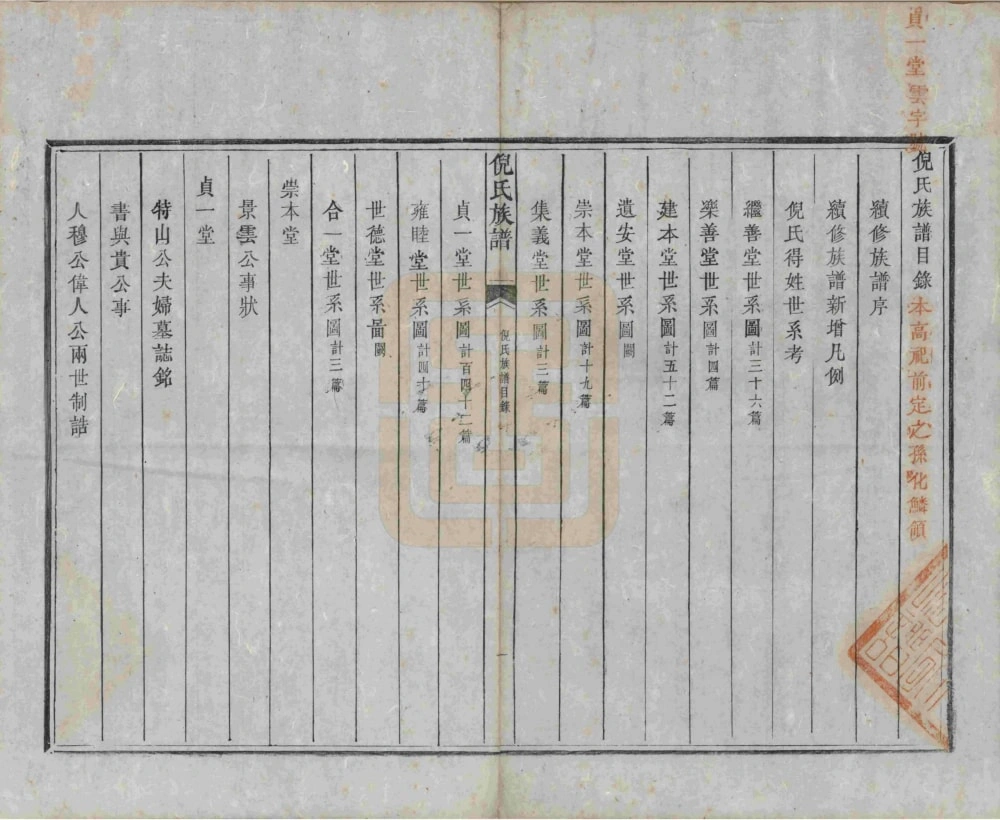 貞一堂雲字號
倪氏族譜目錄 本高祀前定之孫化鱗領
續修族譜序
續修族譜新增凡例
倪氏得姓世系考
繼善堂世系圖計三十六篇
樂善堂世系圖計四篇
建本堂世系圖計五十二篇
遺安堂世系圖闕
崇本堂世系圖計十九篇
集義堂世系圖計三篇
倪氏族譜 倪氏族譜目錄 一
貞一堂世系圖計百四十二篇
雍睦堂世系圖計四十篇
世德堂世系啚闕
合一堂世系圖計三篇
崇本堂
景雲公事狀
貞一堂
特山公夫婦墓誌銘
書與貴公事
人穆公偉人公兩世制誥